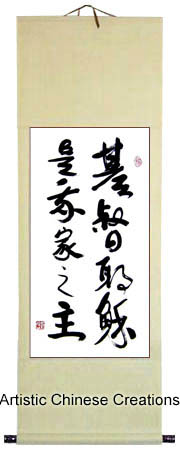 基督耶穌
是我家之主
Artistic Chinese Creations